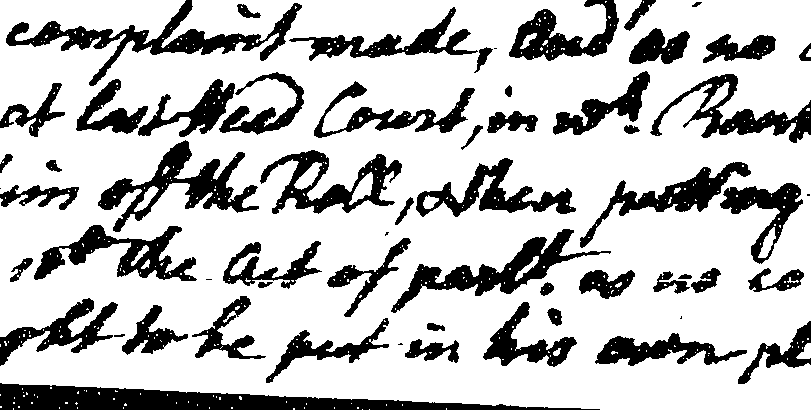 complaint made, And as no
at last Head Court, in wch. Rank
him off the Roll, & then putting
10th the Act of parlt. as no co
ght to be put in his own pl